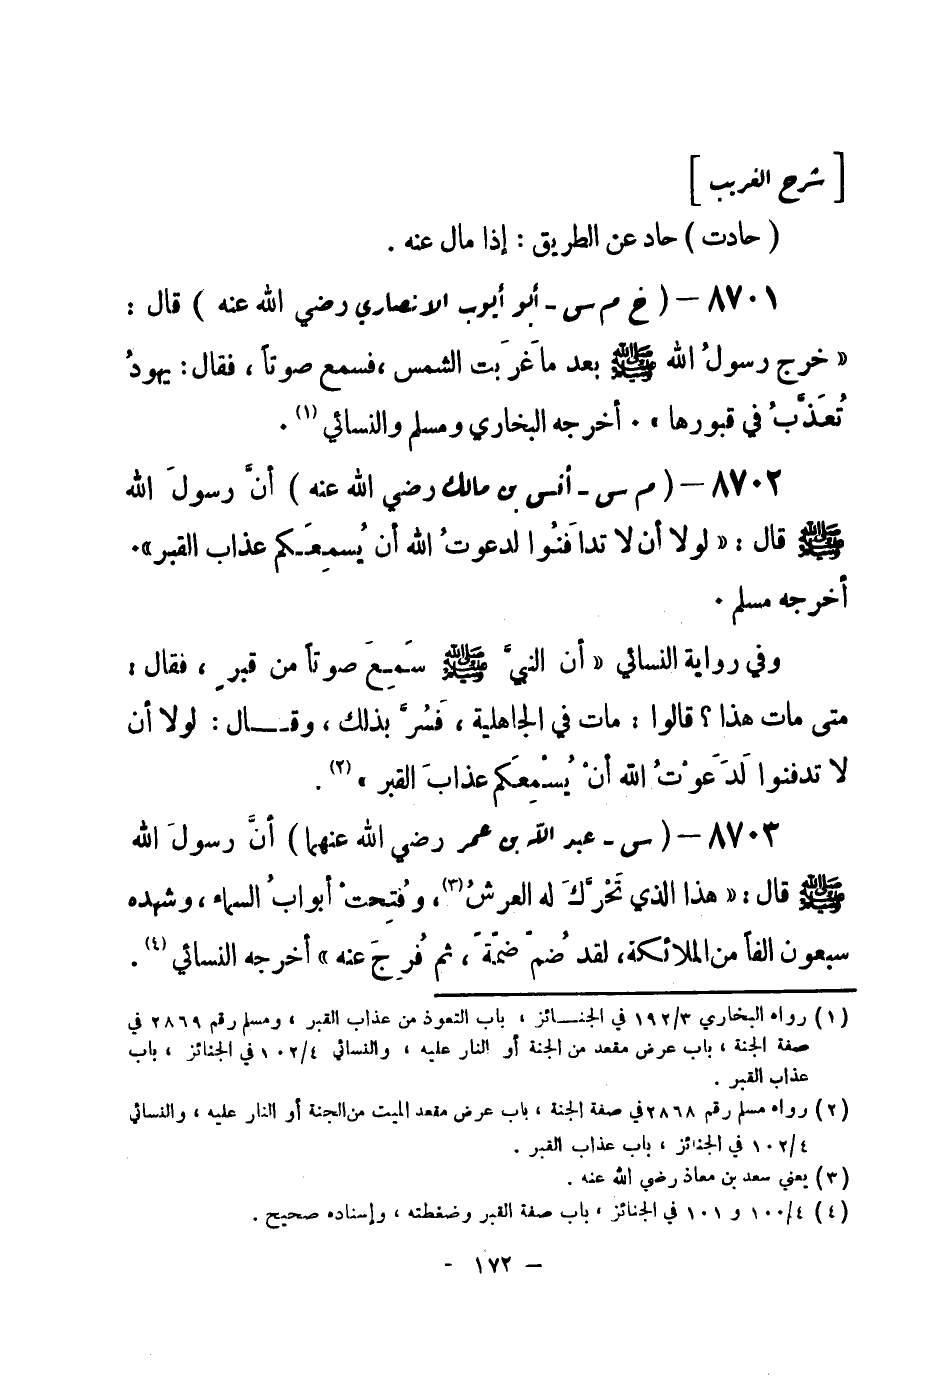 [ شرح الغريب ]
( حادت ) حاد عن الطريق : إذا مال عنه .
٨٧٠١ – ( خ م س - أبو أيوب الانصاري رضي الله عنه ) قال :
« خرج رسولُ الله ﷺ بعد ما غَرَبت الشمس ، فسمع صوتاً ، فقال : يهودُ
تُعَذَّبُ في قبورها » . أخرجه البخاري ومسلم والنسائي (١) .
٨٧٠٢ – ( م س - أنس بن مالك رضي الله عنه ) أنَّ رسولَ الله
ﷺ قال : « لولا أن لا تدافَنُوا لدعوتُ الله أن يُسمِعَكم عذاب القبر » .
أخرجه مسلم .
وفي رواية النسائي « أن النبيَّ ﷺ سَمِعَ صوتاً من قبرٍ ، فقال :
متى مات هذا ؟ قالوا : مات في الجاهلية ، فَسُرَّ بذلك ، وقــال : لولا أن
لا تدفنوا لَدَعَوْتُ الله أنْ يُسْمِعَكم عذابَ القبر » (٢) .
٨٧٠٣ – ( س - عبد الله بن عمر رضي الله عنهما ) أنَّ رسولَ الله
ﷺ قال : « هذا الذي تَحَرَّكَ له العرشُ (٣) ، وفُتِحتْ أبوابُ السماء ، وشهده
سبعون الفاً من الملائكة ، لقد ضُمَّ ضَمَّةً ، ثم فُرِجَ عنه » أخرجه النسائي (٤) .
(١) رواه البخاري ١٩٢/٣ في الجنــائز ، باب التعوذ من عذاب القبر ، ومسلم رقم ٢٨٦٩ في
صفة الجنة ، باب عرض مقعد من الجنة أو النار عليه ، والنسائي ١٠٢/٤ في الجنائز ، باب
عذاب القبر .
(٢) رواه مسلم رقم ٢٨٦٨ في صفة الجنة ، باب عرض مقعد الميت من الجنة أو النار عليه ، والنسائي
١٠٢/٤ في الجنائز ، باب عذاب القبر .
(٣) يعني سعد بن معاذ رضي الله عنه .
(٤) ١٠٠/٤ و ١٠١ في الجنائز ، باب صفة القبر وضغطته ، وإسناده صحيح .
– ١٧٢ -